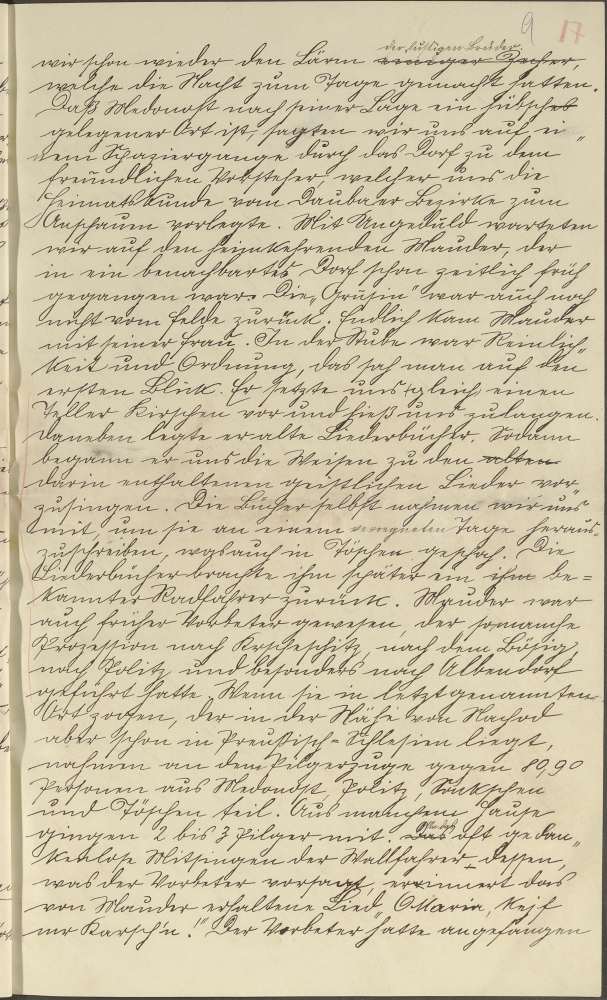 9 17
der lustigen Brüder,
wir schon wieder den Lärm einiger Zecher,
welche die Nacht zum Tage gemacht hatten.
Daß Medonost nach seiner Lage ein hübsches
gelegener Ort ist, sagten wir uns auf ei„
nem Spaziergange durch das Dorf zu dem
freundlichen Vorsteher, welcher uns die
Heimatskunde vom Daubaer Bezirke zum
Anschauen vorlegte. Mit Ungeduld warteten
wir auf den heimkehrenden Mauder, der
in ein benachbartes Dorf schon zeitlich früh
gegangen war. Die „Grusin" war auch noch
nicht vom Felde zurück. Endlich kam Mauder
mit seiner Frau. In der Stube war Reinlich„
keit und Ordnung, das sah man auf den
ersten Blick. Er setzte uns gleich einen
Teller Kirschen vor und hieß uns zulangen.
Daneben legte er alte Liederbücher. Sodann
begann er uns die Weisen zu den alten
darin enthaltenen geistlichen Lieder vor„
zusingen. Die Bücher selbst nahmen wir uns
mit, um sie an einem verregneten Tage heraus„
zuschreiben, was auch in Töschen geschah. Die
Liederbücher brachte ihm später ein ihm be=
kannter Radfahrer zurück. Mauder war
auch früher Vorbeter gewesen, der so manche
Prozession nach Krscheschitz, nach dem Bösig,
nach Politz und besonders nach Albendorf
geführt hatte. Wenn sie in letztgenannten
Ort zogen, der in der Nähe von Nachod
aber schon in Preußisch=Schlesien liegt,
nahmen an dem Pilgerzuge gegen 80, 90
Personen aus Medonost, Politz, Sönkschen
und Töschen teil. Aus manchem Hause
gingen 2 bis 3 Pilger mit. Das oft gedan„
kenlose Mitsingen der Wallfahrer, dessen,
was der Vorbeter vorsagt, erinnert das
von Mauder erhaltene Lied „O Maria, kejf
mr Karsch'n!" Der Vorbeter hatte angefangen